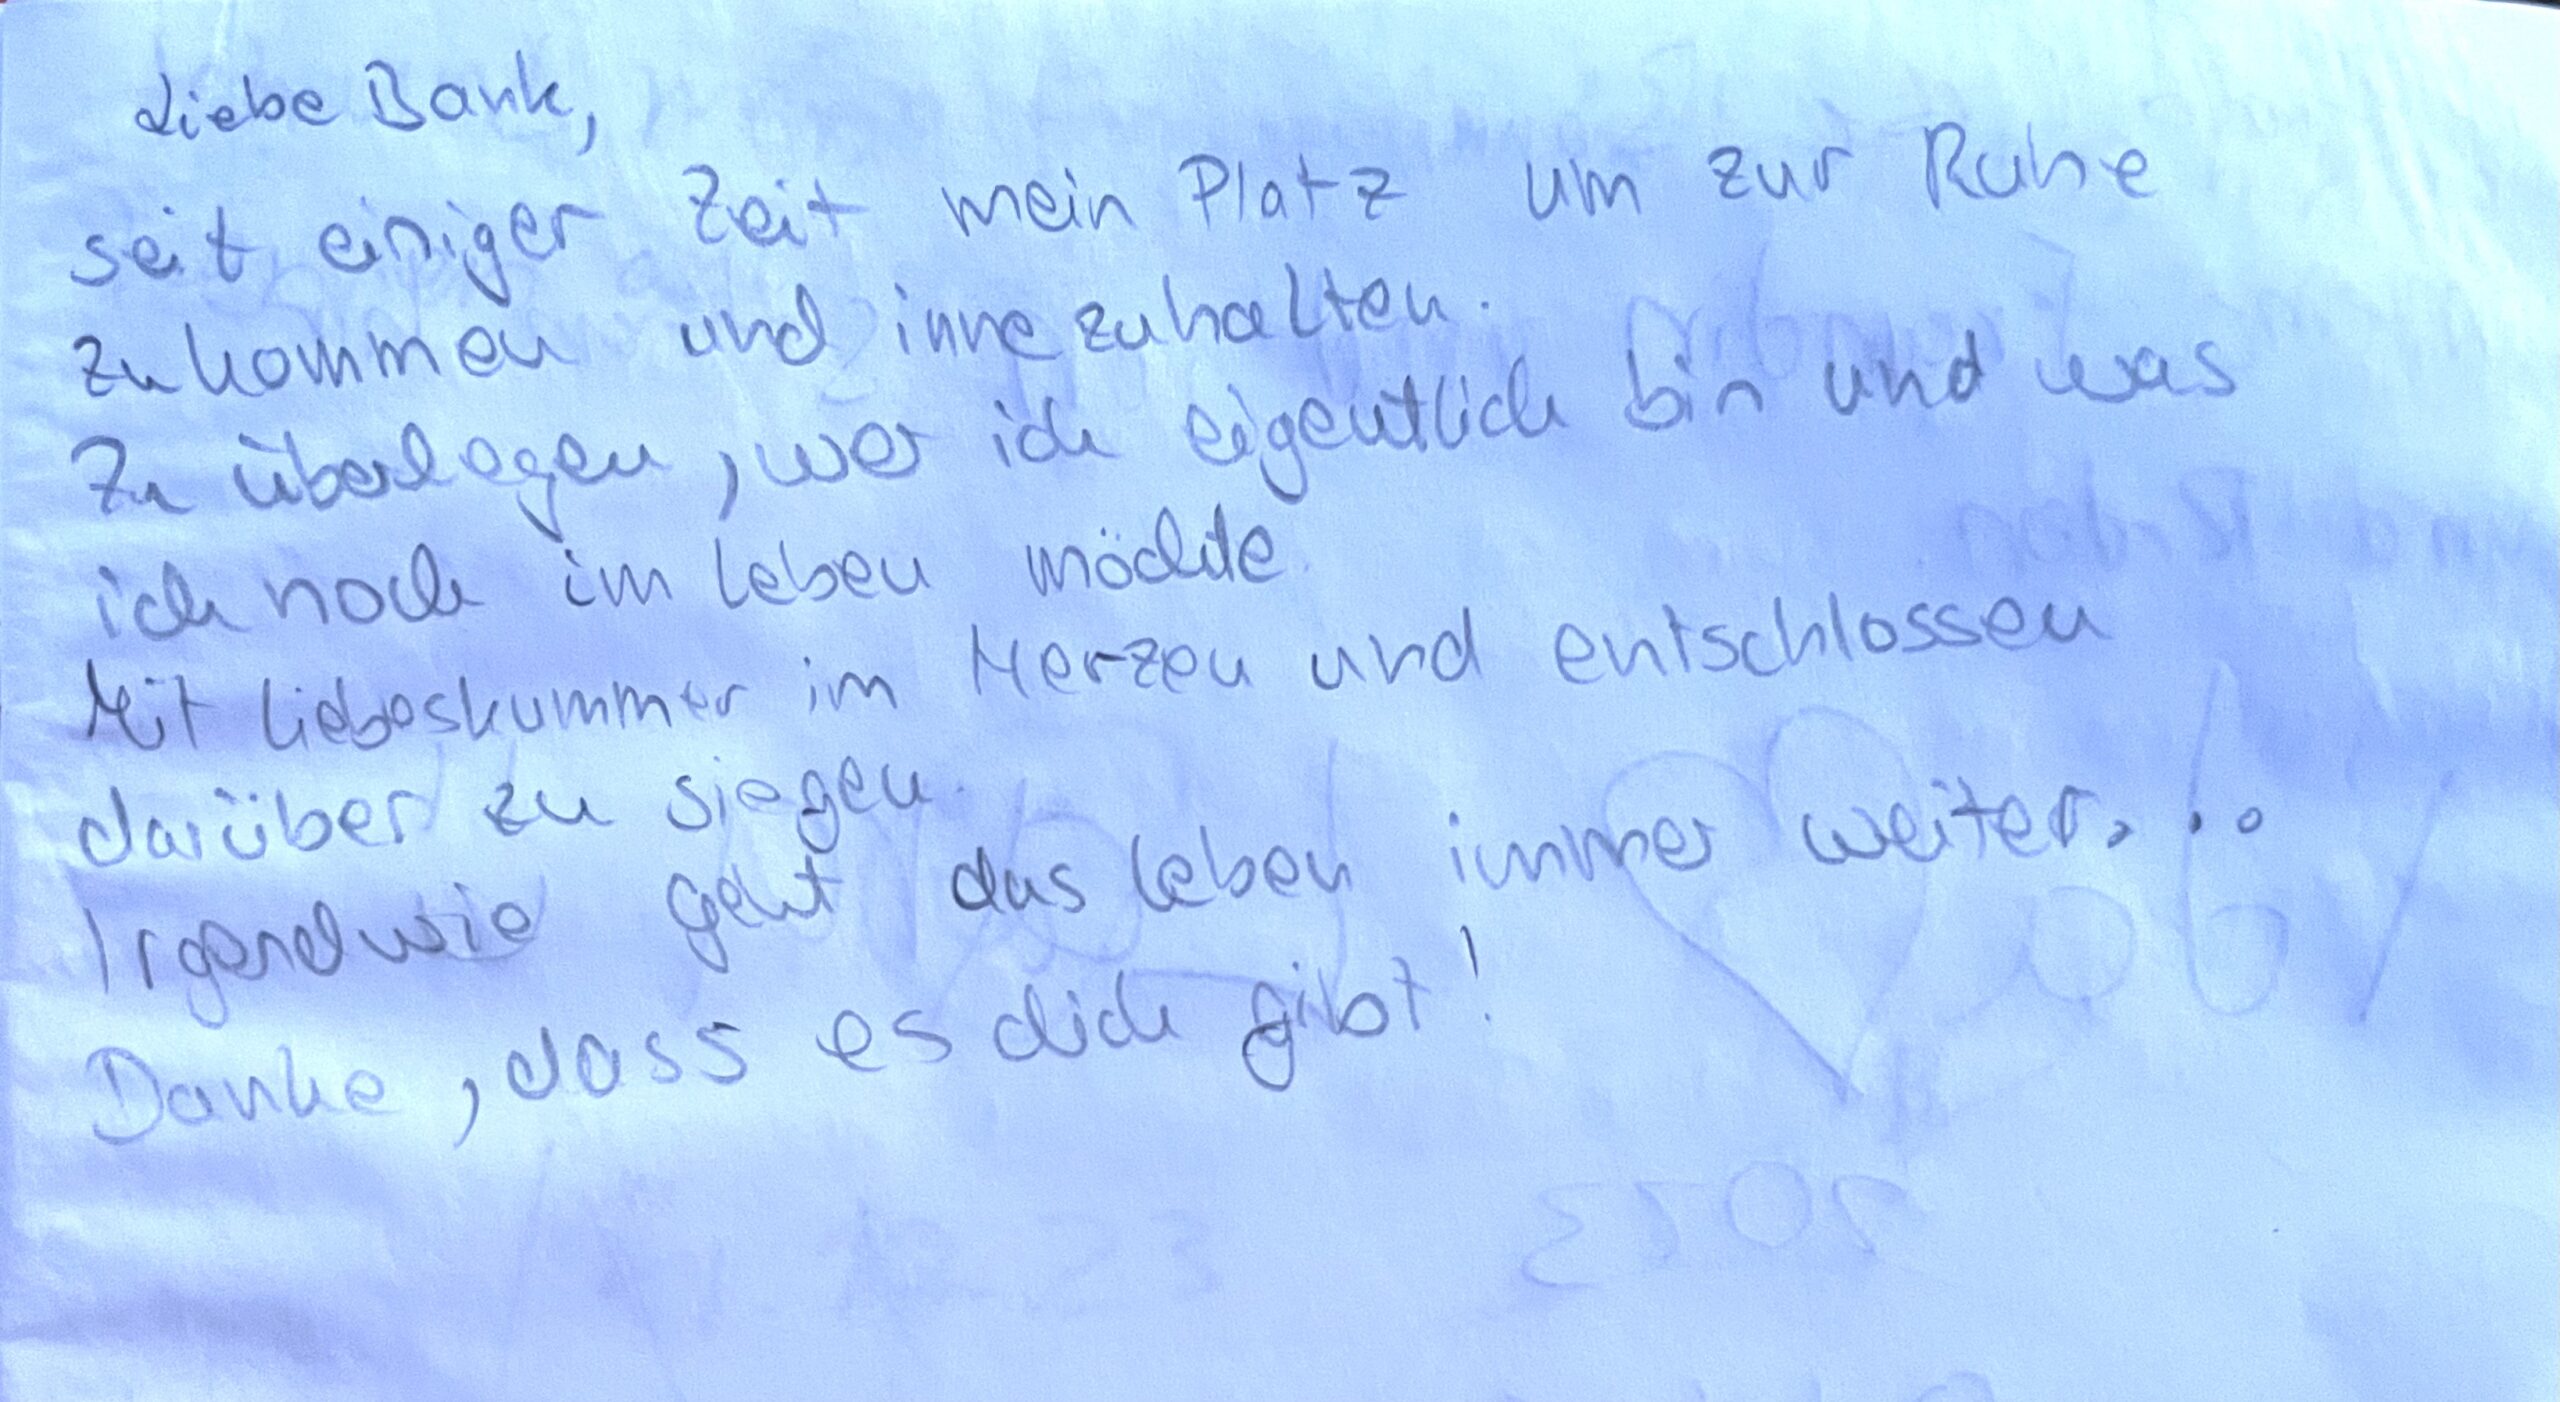 Liebe Bank,
seit einiger Zeit mein Platz um zur Ruhe
zu kommen und innezuhalten.
Zu überlegen, wer ich eigentlich bin und was
ich noch im Leben möchte.
Mit Liebeskummer im Herzen und entschlossen
darüber zu siegen.
Irgendwie geht das Leben immer weiter...
Danke, dass es dich gibt!